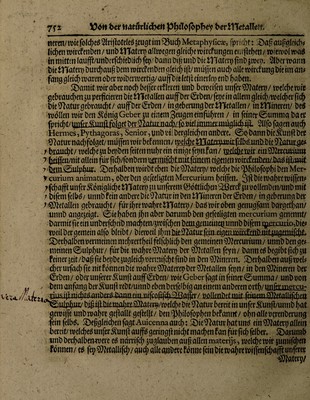 752 Von der natürlichen Philosophey der Metallen.
neren/ wie solches Aristoteles zeugt im Buch Metaphysicæ, spricht: Daß außgleich-
lichen wirckenden/ und Matery allwegen gleiche wirckungen enstehen/ wiewol was
in mitten laufft/ underschiedlich sey/ dann diß und die Matery sind zwey. Aber wann
die Matery durchauß dem wirckenden gleich ist/ müssen auch alle wirckung die im an-
fang gleich waren oder widerwertig/ auff die letst einerley end haben.
Damit wir aber noch besser erklären und beweisen unsere Matery/ welche wir
gebrauchen zu perficieren die Metall auff der Erden/ seye in allem gleich/ welcher sich
die Natur gebraucht/ auff der Erden/ in geberung der Metallen/ in Minern/ des
wöllen wir den König Geber zu einem Zeugen einführen/ in seiner Summa da er
spricht/ unser Kunst folget der Natur nach/ so viel immer müglich ist. Also sagen auch
Hermes, Pythagoras, Senior, und vil dergleichen andere. So dann die Kunst der
Natur nachfolget/ müssen wir bekennen/ welche Matery wir selbs und die Natur ge-
braucht/ welche zu beyden seiten nuhr ein einige seyn kan/ welche wir ein Mercurium
heissen/ mit allein für sich/ sondern vermischt mit seinem eigenen wirckenden/ das ist/ mit
dem Sulphur. Derhalben wirdt eben die Matery welche die Philosophi den Mer-
curium animatum, oder den gesetzten Mercurium heissen. Ist die wahre wissen-
schafft unser Königliche Matery zu unserem Göttlichen Werck zu vollenden/ und mit
disem selbs/ und kein andere die Natur in den Mineren der Erden/ in geberung der
Metallen gebraucht/ für ihr wahre Matery/ das wir oben genugsam dargethan
unnd angezeigt. Sie haben ihn aber darumb den gesetzten mercurium genennet
darmit sie ein underschid machen/ zwischen dem gemeinen unnd disem mercurio: die-
weil der gemein also bleibt/ dieweil ihn die Natur sein eigen agens nit zugemischt.
Derhalben vermeinen mechverthail felichlich den gemeinen Mercurium/ unnd den ge-
meinen Sulphur/ für die wahre Matery der Metallen seyn/ dann es begibt sich zu
keiner zeit/ daß sie beyde zugleich vereinbart sind in den Mineren. Derhalben auß wel-
cher ursach sie nit können die wahre Matery der Metallen seyn/ in den Minern der
Erden/ ob unser Kunst auff Erden/ wie Geber sagt in seiner Summa/ und von
dem anfang der Kunst redt/ und eben derselbig an einem anderen orth/ unser mercu-
rius ist nichts anders dann ein viscosisch Wasser/ vollendet mit seinem Metallischen
Sulphur/ diß ist die wahre Matery/ welche die Natur bereit in unser Kunst/ unnd hat
gewisse und wahre gestallt gestellt/ den Philosophen bekannt/ ohn alle veränderung
sein selbs. Deßgleichen sagt Auicenna auch: Die Natur hat uns ein Matery allein
bereit/ welches unser Kunst auffs geringst nicht machen kan für sich selber. Darumb
und derhalben were es närrisch zuglauben auß allen materijs, welche wir zumischen
können/ es sey Metallisch/ auch alle andere könte sein die wahr wissenschafft unserer
Matery/
vera Materia